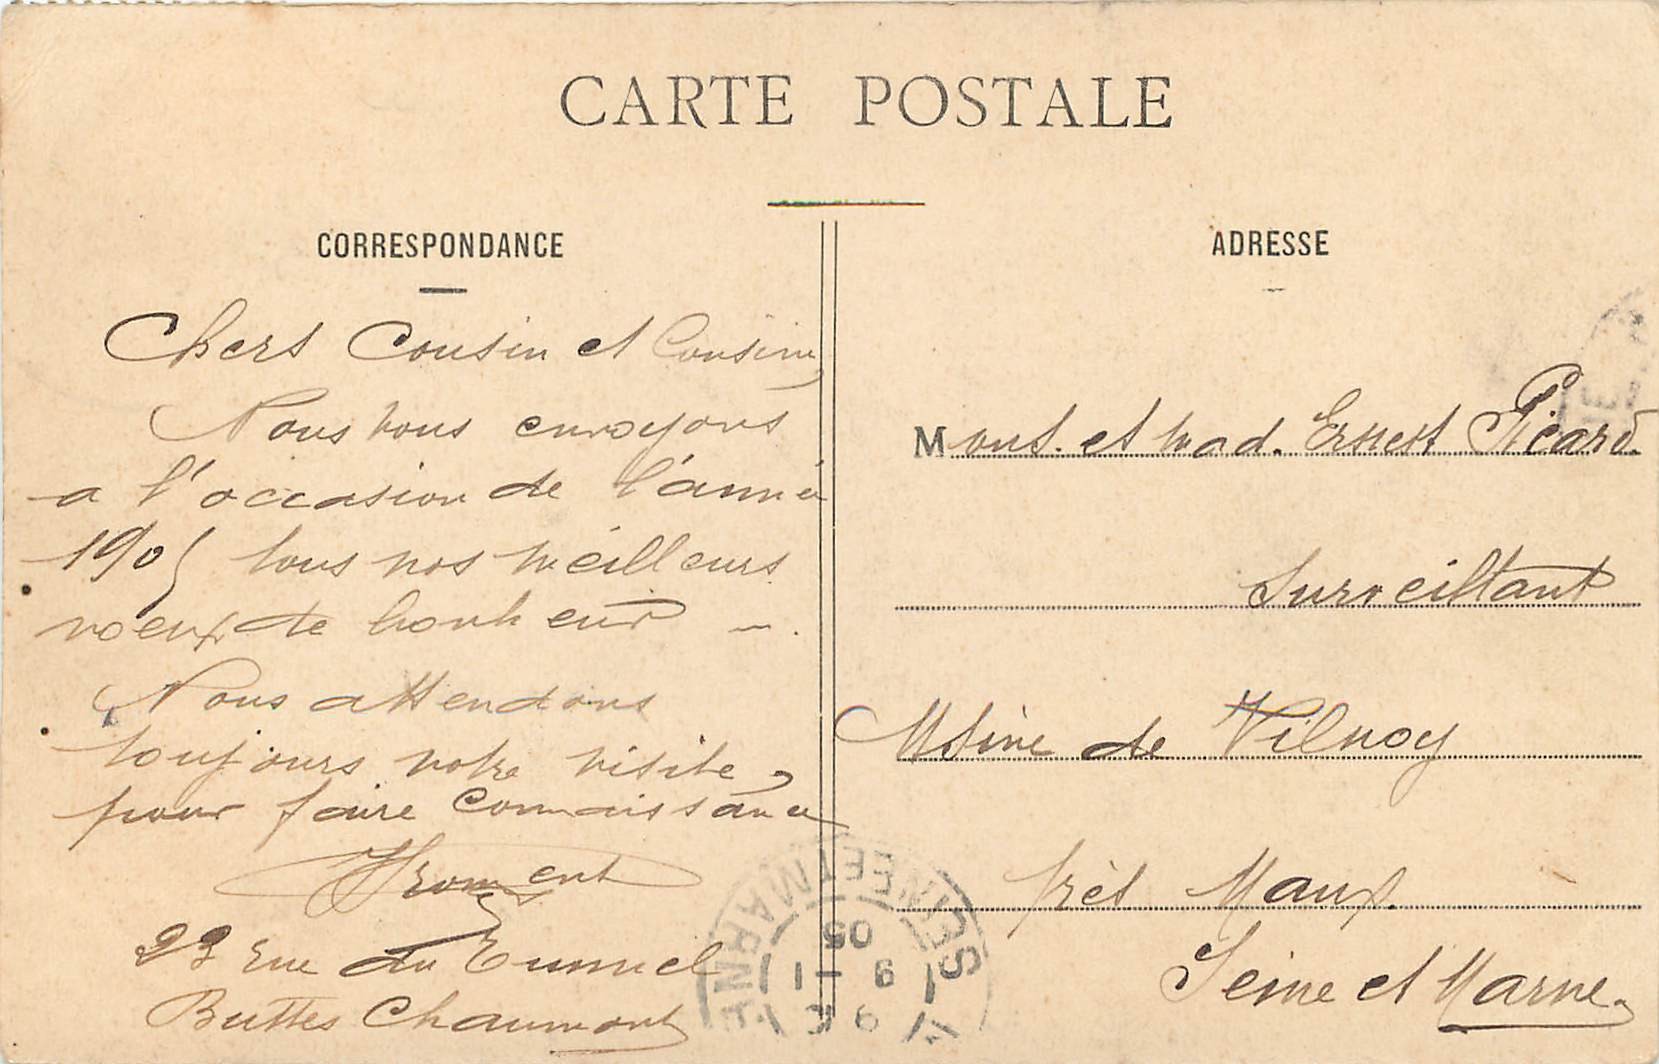 CARTE POSTALE
CORRESPONDANCE
Chers Cousin et Cousine,
Nous vous envoyons
a l'occasion de l'année
1905 tous nos meilleurs
voeux de bonheur
Nous attendons
toujours votre visite,
pour faire connaissance
Froment
23 rue du Tunnel
Buttes Chaumont
ADRESSE
Mons. et Mad. Ernest Picard
Surveillant
Usine de Vilnoy
près Maux.
Seine et Marne
SEINE ET MARNE
9 - 1
05